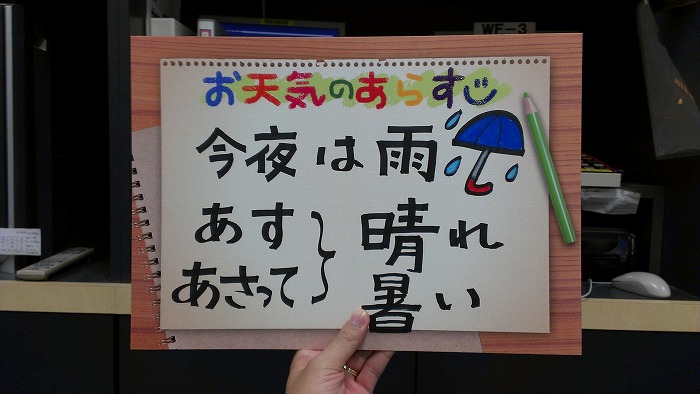 WF-3
お天気のあらすじ
今夜は雨
あす
あさって
晴れ
暑い